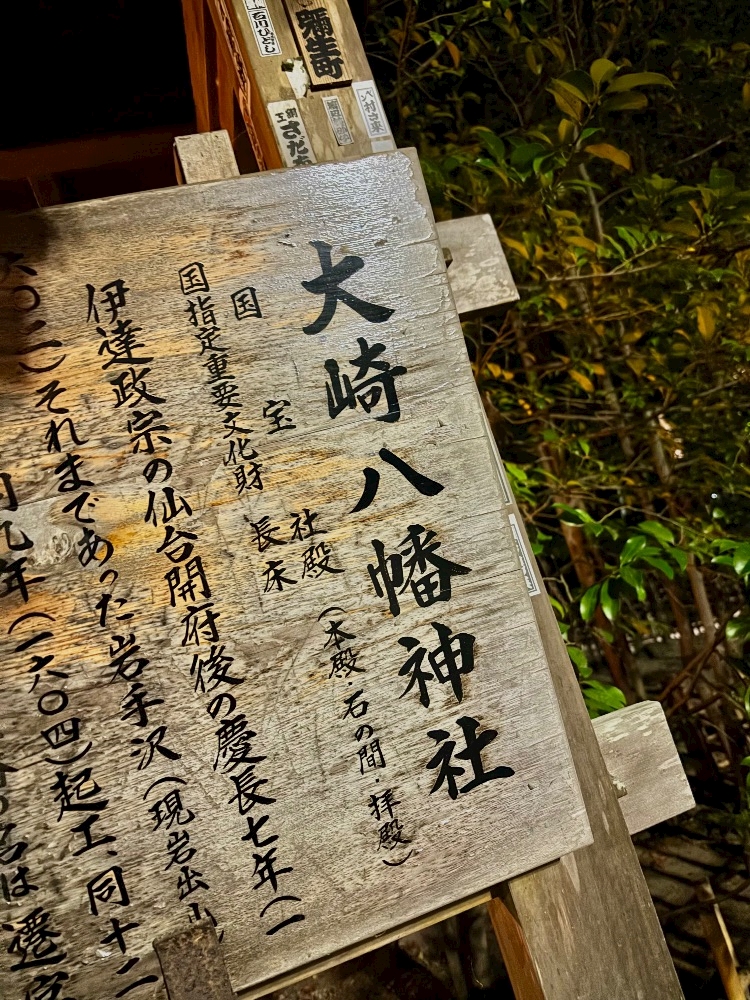 大崎八幡神社
国宝 社殿（本殿・石の間・拝殿）
国指定重要文化財 長床
伊達政宗の仙台開府後の慶長七年（一
六〇二）それまであった岩手沢（現岩出山
九年（一六〇四）起工、同十二
は遷宮
彌生町
石川ひとし